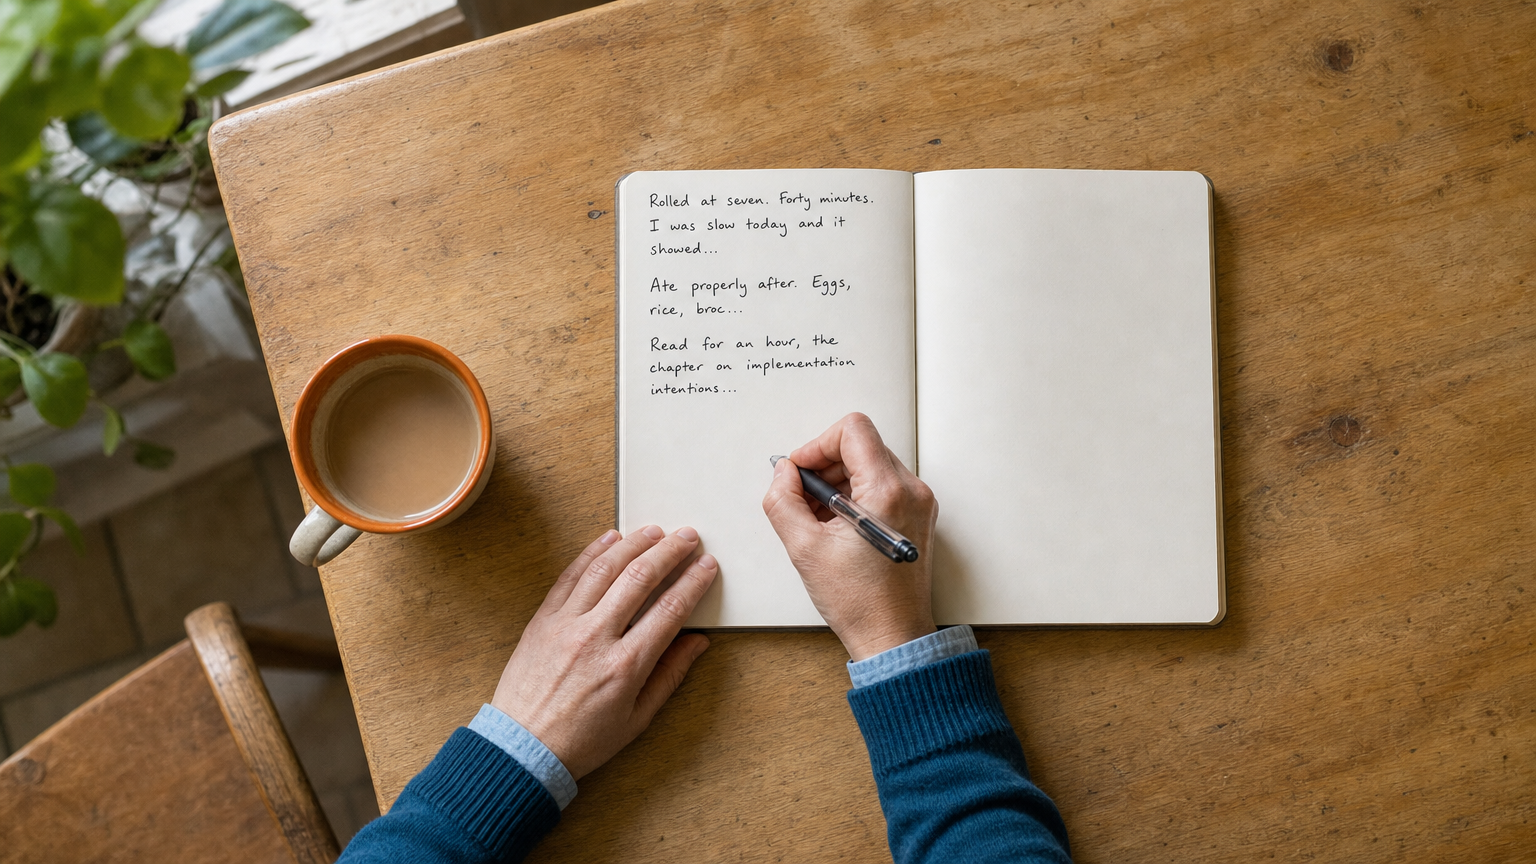 Rolled at seven. Forty minutes.
I was slow today and it
showed...
Ate properly after. Eggs,
rice, broc...
Read for an hour, the
chapter on implementation
intentions...